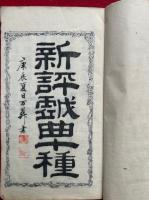 新評戲曲十種
庚辰夏日